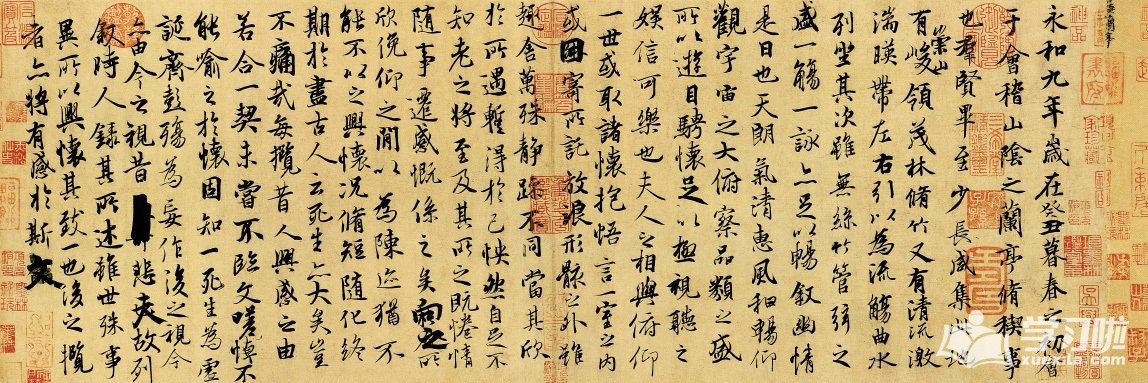 永和九年歲在癸丑暮春之初會
于會稽山陰之蘭亭脩稧事
也羣賢畢至少長咸集此地
有崇山峻領茂林脩竹又有清流激
湍暎帶左右引以為流觴曲水
列坐其次雖無絲竹管弦之
盛一觴一詠亦足以暢敘幽情
是日也天朗氣清惠風和暢仰
觀宇宙之大俯察品類之盛
所以遊目騁懷足以極視聽之
娛信可樂也夫人之相與俯仰
一世或取諸懷抱悟言一室之內
或因寄所託放浪形骸之外雖
趣舍萬殊静躁不同當其欣
於所遇暫得於己怏然自足不
知老之將至及其所之既惓情
隨事遷感慨係之矣向之所
欣俛仰之閒以為陳迹猶不
能不以之興懷況脩短隨化終
期於盡古人云死生亦大矣豈
不痛哉每攬昔人興感之由
若合一契未嘗不臨文嗟悼不
能喻之於懷固知一死生為虛
誕齊彭殤為妄作後之視今
亦由今之視昔悲夫故列
敘時人錄其所述雖世殊事
異所以興懷其致一也後之攬
者亦將有感於斯文
学习啦
xuexila.com